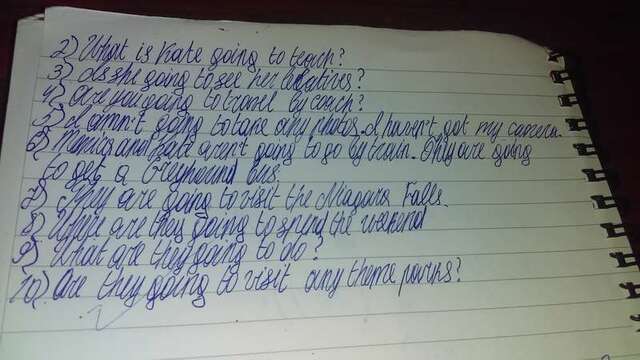 2) What is Kate going to teach?
3) Is she going to see her relatives?
4) Are you going to travel by coach?
5) I amn't going to take any photos. I haven't got my camera.
6) and Kate aren't going to go by train. They are going
to get a Greyhound bus.
7) They are going to visit the Niagara Falls.
8) Where are they going to spend the weekend
9) What are they going to do?
10) Are they going to visit any theme parks?